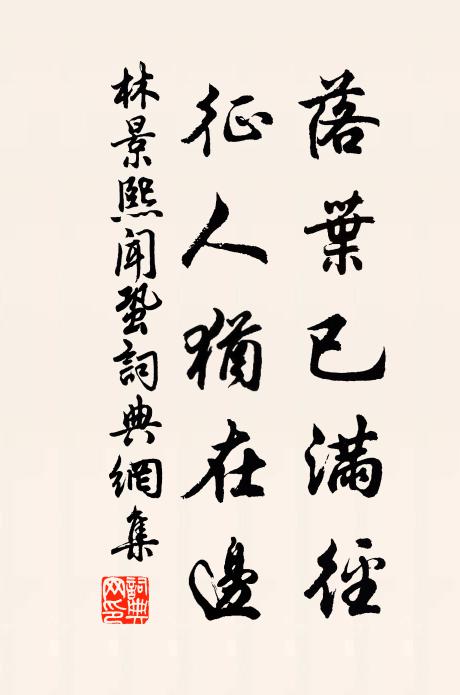 落葉已滿徑
征人猶在邊
林景熙聞蛩詞典網集
詞典网印